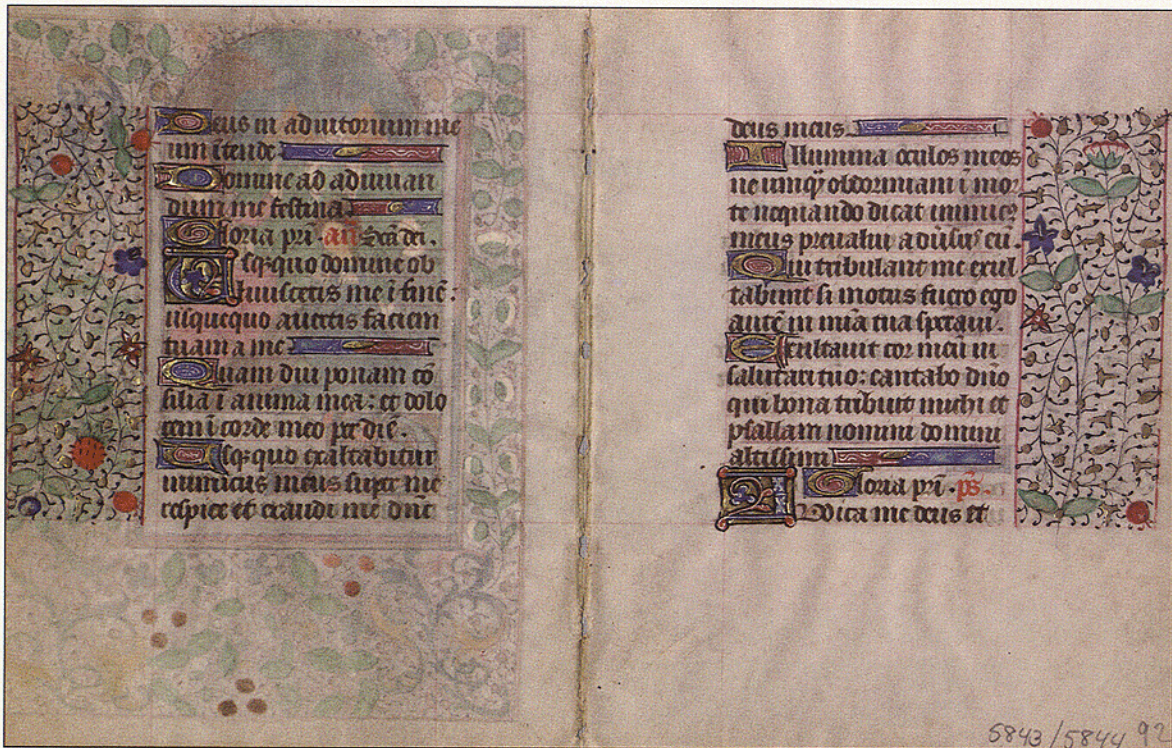 Deus in adiutorium me
um ītende
Domine ad adiuuan
dum me festina
Gloria pri. añ Scā dei.
Usq̄quo domine ob
liuisceris me ī finē:
usquequo auertis faciem
tuam a me
Quam diu ponam cō
silia ī anima mea: et dolo
rem ī corde meo per diē.
Usq̄quo exaltabitur
inimicus meus super me
respice et exaudi me dn̄e
deus meus.
Illumina oculos meos
ne umq̄ obdormiam ī mor
te nequando dicat inimic9
meus preualui aduersus eū.
Qui tribulant me exul
tabunt si motus fuero ego
autē in mīa tua speraui.
Exultauit cor meū in
salutari tuo: cantabo dn̄o
qui bona tribuit michi et
psallam nomini domini
altissimi
Gloria pri. ps.
Iudica me deus et
5843/5844 92